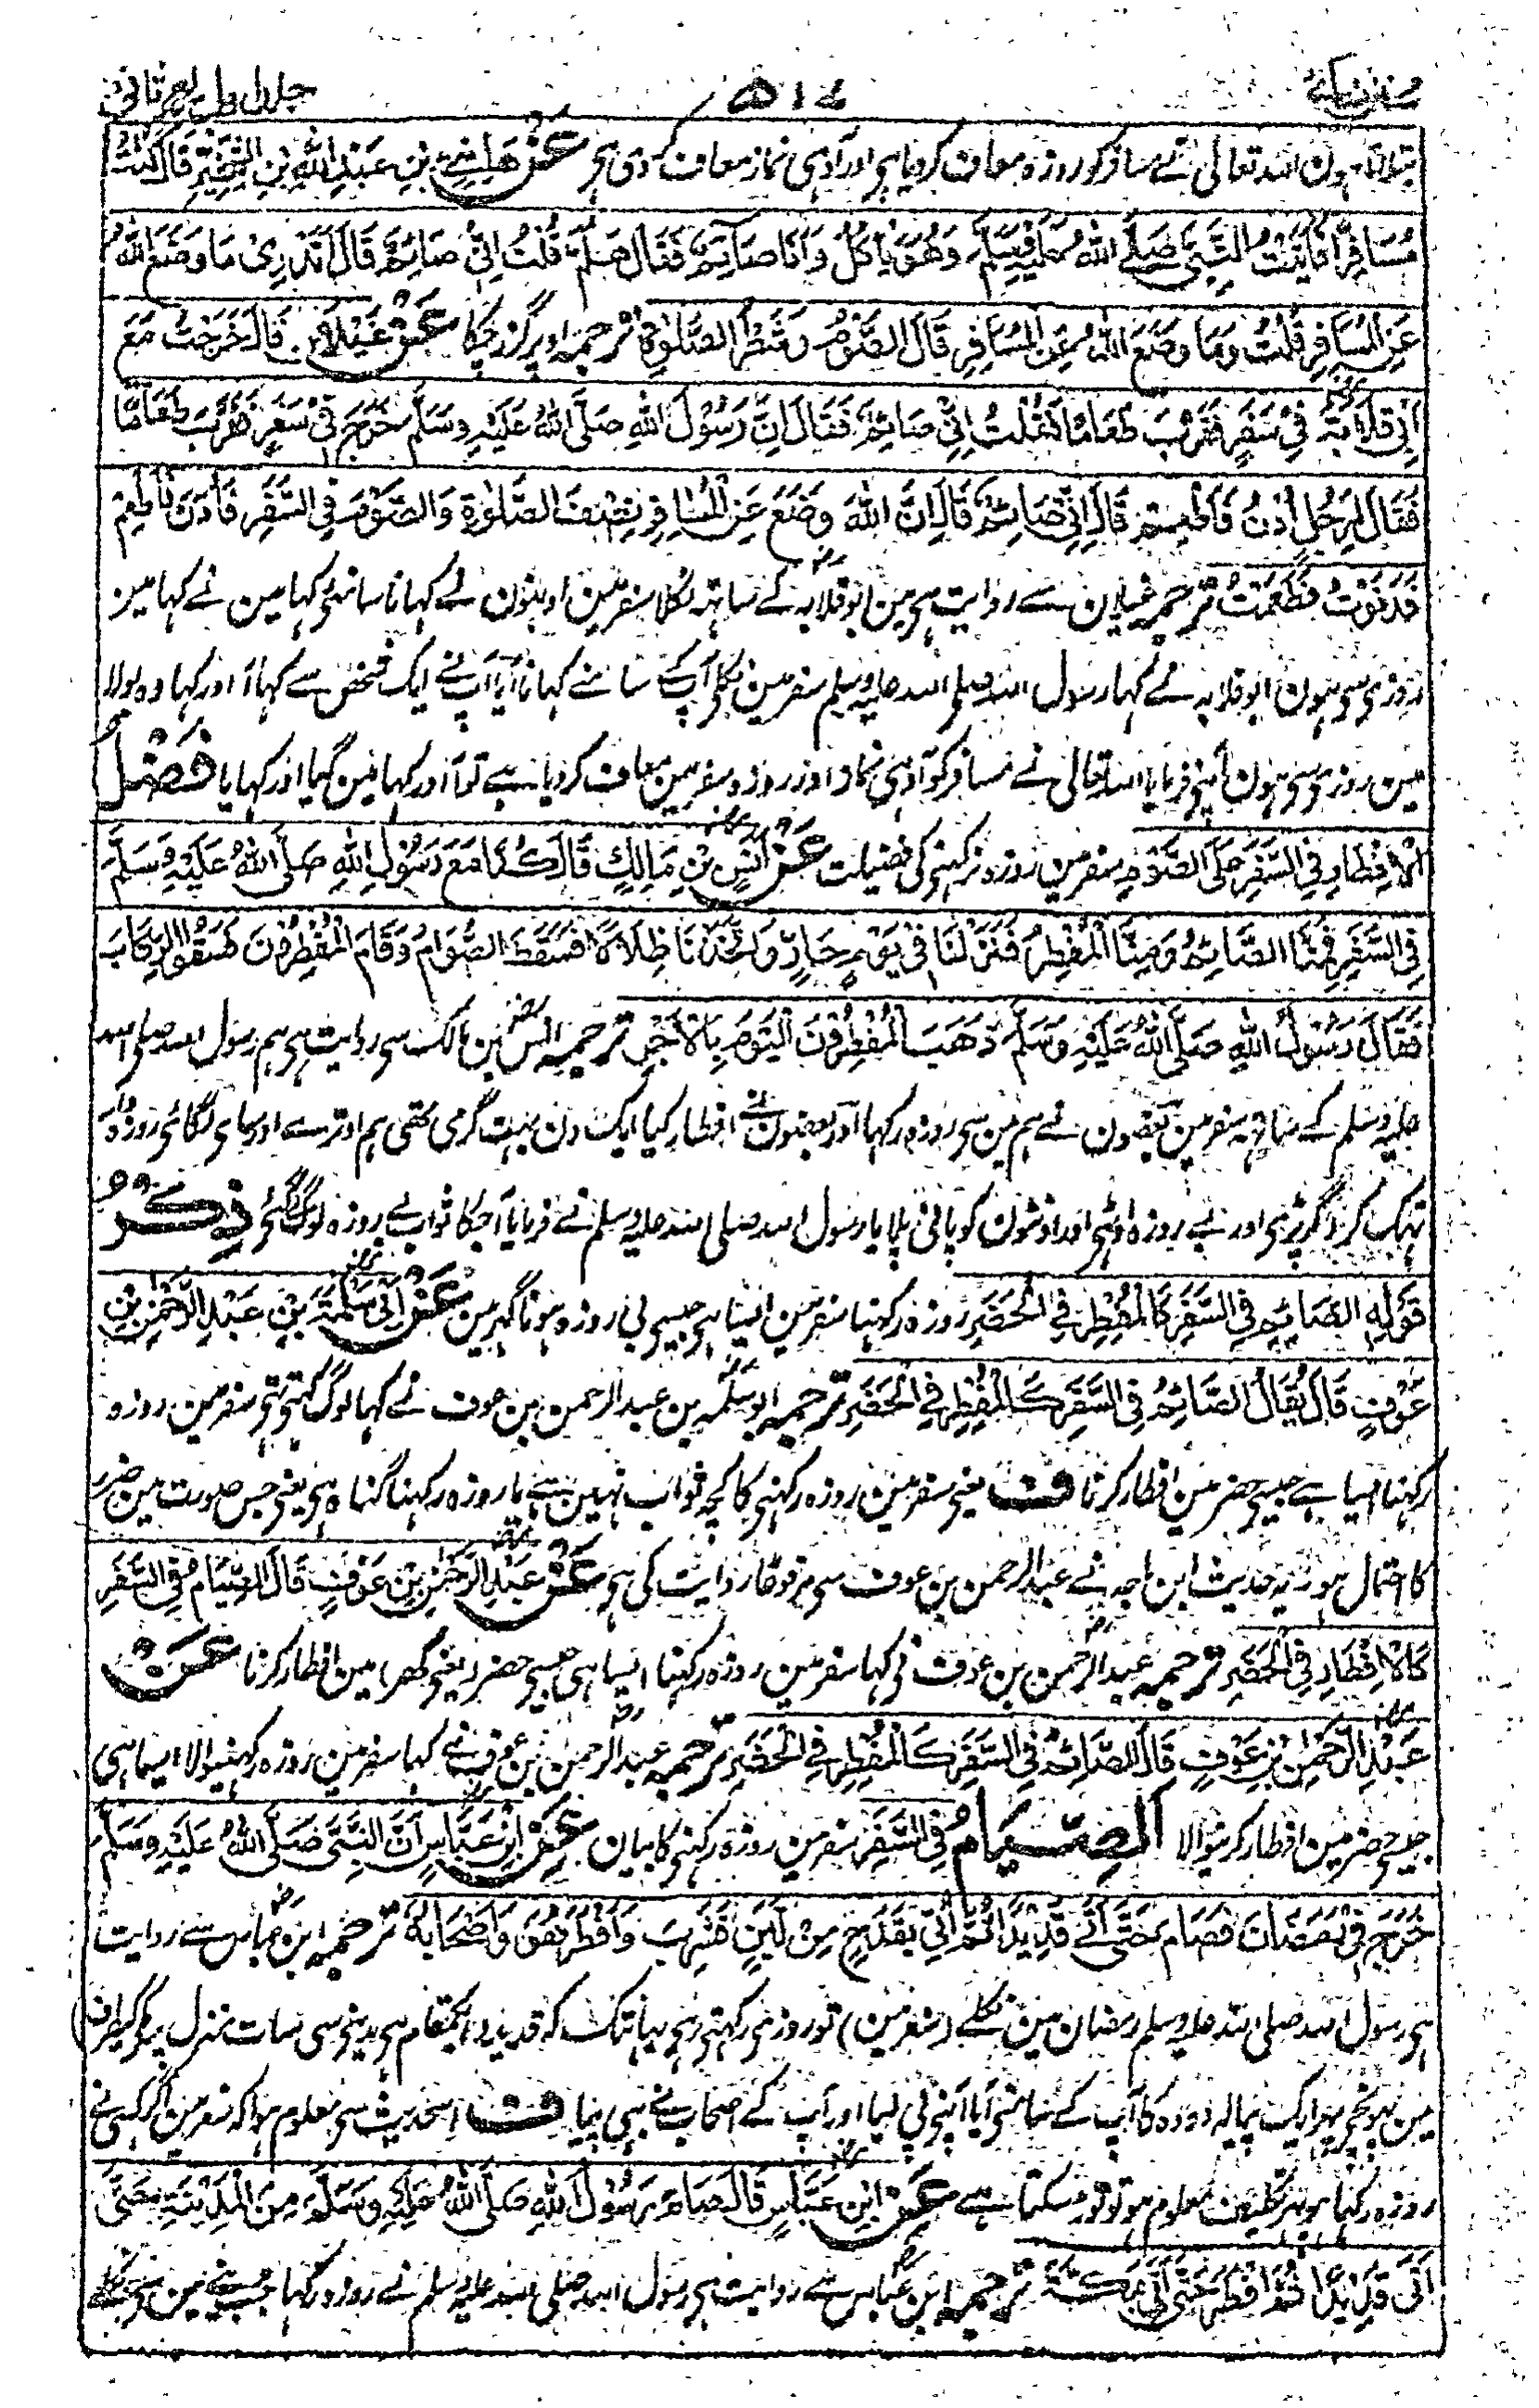 سنن نسائی ۵۱۷ جلد اول ربع ثانی
بتلاتا ہون اللہ تعالی نے مسافر کو روزہ معاف کر دیا ہی اور آدہی نماز معاف کر دی ہی عَنْ هَانِئِ بْنِ عَبْدِ اللهِ بْنِ الشِّخِّيْرِ قَالَ كُنْتُ
مُسَافِرًا فَاَتَيْتُ النَّبِيَّ صَلَّى اللهُ عَلَيْهِ وَسَلَّمَ وَهُوَ يَأْكُلُ وَاَنَا صَائِمٌ فَقَالَ هَلُمَّ قُلْتُ اِنِّيْ صَائِمٌ قَالَ اَتَدْرِيْ مَا وَضَعَ اللهُ
عَنِ الْمُسَافِرِ قُلْتُ وَمَا وَضَعَ اللهُ عَنِ الْمُسَافِرِ قَالَ الصَّوْمَ وَشَطْرَ الصَّلٰوةِ ترجمہ اوپر گزر چکا عَنْ غَيْلَانَ قَالَ خَرَجْتُ مَعَ
اَبِيْ قِلَابَةَ فِيْ سَفَرٍ فَقَرَّبَ طَعَامًا فَقُلْتُ اِنِّيْ صَائِمٌ فَقَالَ اِنَّ رَسُوْلَ اللهِ صَلَّى اللهُ عَلَيْهِ وَسَلَّمَ خَرَجَ فِيْ سَفَرٍ فَقَرَّبَ طَعَامًا
فَقَالَ لِرَجُلٍ اُدْنُ فَاطْعَمْ قَالَ اِنِّيْ صَائِمٌ قَالَ اِنَّ اللهَ وَضَعَ عَنِ الْمُسَافِرِ نِصْفَ الصَّلٰوةِ وَالصَّوْمَ فِي السَّفَرِ فَادْنُ فَاطْعَمْ
فَدَنَوْتُ فَطَعِمْتُ ترجمہ غیلان سے روایت ہی مین ابو قلابہ کے ساتہہ نکلا سفر مین اونہون نے کہانا سامنے کیا مین نے کہا مین
روزی سی ہون ابو قلابہ نے کہا رسول اللہ صلی اللہ علیہ وسلم سفر مین نکلی آپ کے سامنے کہانا آیا آپ نے ایک شخص سے کہا آ اور کہا وہ بولا
مین روزی سی ہون آپنی فرمایا اللہ تعالی نے مسافر کو آدہی نماز اور روزہ سفر مین معاف کر دیا ہے تو آ اور کہا مین گیا اور کہایا فَضْلُ
الْاِفْطَارِ فِي السَّفَرِ عَلَى الصَّوْمِ سفر مین روزہ نرکہنی کی فضیلت عَنْ اَنَسِ بْنِ مَالِكٍ قَالَ كُنَّا مَعَ رَسُوْلِ اللهِ صَلَّى اللهُ عَلَيْهِ وَسَلَّمَ
فِي السَّفَرِ فَمِنَّا الصَّائِمُ وَمِنَّا الْمُفْطِرُ فَنَزَلْنَا فِيْ يَوْمٍ حَارٍّ وَاتَّخَذْنَا ظِلَالًا فَسَقَطَ الصُّوَّامُ وَقَامَ الْمُفْطِرُوْنَ فَسَقَوُا الرِّكَابَ
فَقَالَ رَسُوْلُ اللهِ صَلَّى اللهُ عَلَيْهِ وَسَلَّمَ ذَهَبَ الْمُفْطِرُوْنَ الْيَوْمَ بِالْاَجْرِ ترجمہ انس بن مالک سی روایت ہی ہم رسول اللہ صلی اللہ
علیہ وسلم کے ساتہہ سفر مین بعضون نے ہم مین سی روزہ رکہا اور بعضون نے افطار کیا ایک دن بہت گرمی تھی ہم اوترے اور سایی لگائی روزہ دار
تہک کر گر پڑی اور بے روزہ اوٹہی اور اونٹون کو پانی پلایا رسول اللہ صلی اللہ علیہ وسلم نے فرمایا آجکا ثواب بے روزہ لوگ لیگئی ذِكْرُ
قَوْلِهِ الصَّائِمُ فِي السَّفَرِ كَالْمُفْطِرِ فِي الْحَضَرِ روزہ رکہنا سفر مین ایسا ہی جیسی بی روزہ ہونا گہر مین عَنْ اَبِيْ سَلَمَةَ بْنِ عَبْدِ الرَّحْمٰنِ بْنِ
عَوْفٍ قَالَ يُقَالُ الصَّائِمُ فِي السَّفَرِ كَالْمُفْطِرِ فِي الْحَضَرِ ترجمہ ابو سلمہ بن عبد الرحمن بن عوف نے کہا لوگ کہتی تہی سفر مین روزہ
رکہنا ایسا ہے جیسی حضر مین افطار کرنا ف یعنی سفر مین روزہ رکہنی کا کچہ ثواب نہین ہے یا روزہ رکہنا گناہ ہی یعنی جس صورت مین ضرر
کا احتمال ہو یہ حدیث ابن ماجہ نے عبد الرحمن بن عوف سی مرفوعًا روایت کی ہی عَنْ عَبْدِ الرَّحْمٰنِ بْنِ عَوْفٍ قَالَ الصِّيَامُ فِي السَّفَرِ
كَالْاِفْطَارِ فِي الْحَضَرِ ترجمہ عبد الرحمن بن عوف نی کہا سفر مین روزہ رکہنا ایسا ہی جیسی حضر (یعنی گھر) مین افطار کرنا عَنْ
عَبْدِ الرَّحْمٰنِ بْنِ عَوْفٍ قَالَ الصَّائِمُ فِي السَّفَرِ كَالْمُفْطِرِ فِي الْحَضَرِ ترجمہ عبد الرحمن بن عوف نے کہا سفر مین روزہ رکہنیوالا ایسا ہی
جیسی حضر مین افطار کرنیوالا اَلصِّيَامُ فِي السَّفَرِ سفر مین روزہ رکہنی کا بیان عَنِ ابْنِ عَبَّاسٍ اَنَّ النَّبِيَّ صَلَّى اللهُ عَلَيْهِ وَسَلَّمَ
خَرَجَ فِيْ رَمَضَانَ فَصَامَ حَتّٰى اَتٰى قُدَيْدًا ثُمَّ اُتِيَ بِقَدَحٍ مِنْ لَبَنٍ فَشَرِبَ وَاَفْطَرَ هُوَ وَاَصْحَابُهُ ترجمہ ابن عباس سے روایت
ہی رسول اللہ صلی اللہ علیہ وسلم رمضان مین نکلے (سفر مین) تو روزی رکہتی رہی یہانتک کہ قدید (ایکمقام ہی مدینی سی سات منزل پر
مین پہونچی پہر ایک پیالہ دودہ کا آپ کے سامنی آیا آپنی پی لیا اور آپ کے اصحاب نے بہی پیا ف اسحدیث سی معلوم ہوا کہ سفر مین اگر کسی نے
روزہ رکہا ہو پہر تکلیف معلوم ہو تو توڑ سکتا ہے عَنِ ابْنِ عَبَّاسٍ قَالَ صَامَ رَسُوْلُ اللهِ صَلَّى اللهُ عَلَيْهِ وَسَلَّمَ مِنَ الْمَدِيْنَةِ حَتّٰى
اَتٰى قُدَيْدًا ثُمَّ اَفْطَرَ حَتّٰى اَتٰى مَكَّةَ ترجمہ ابن عباس سے روایت ہی رسول اللہ صلی اللہ علیہ وسلم نے روزہ رکہا جب مدینے سی نکلے